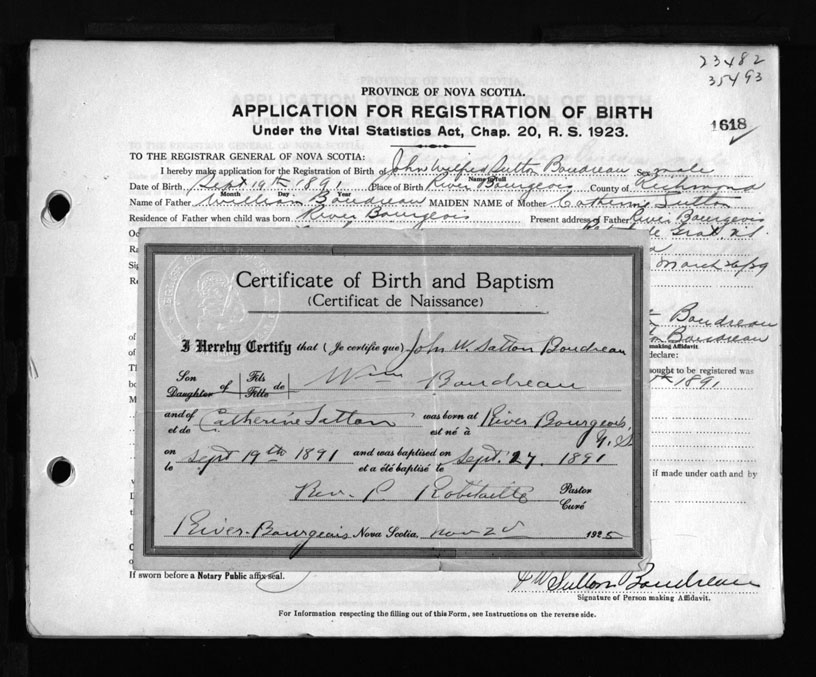 23482
35493
PROVINCE OF NOVA SCOTIA.
APPLICATION FOR REGISTRATION OF BIRTH
1618
Under the Vital Statistics Act, Chap. 20, R. S. 1923.
TO THE REGISTRAR GENERAL OF NOVA SCOTIA:
I hereby make application for the Registration of Birth of John Wilfred Sutton Boudreau Sex male
Name in full
Date of Birth Sept 19th 1891 Place of Birth River Bourgeois County of Richmond
Month Day Year
Name of Father William Boudreau MAIDEN NAME of Mother Catherine Sutton
Residence of Father when child was born River Bourgeois Present address of Father River Bourgeois
March 26/29
Certificate of Birth and Baptism
(Certificat de Naissance)
I Hereby Certify that (Je certifie que) John W. Sutton Boudreau
Boudreau
Boudreau
making Affidavit
declare:
Son Daughter of Fils Fille de Wm Boudreau
ought to be registered was
1891
and of et de Catherine Sutton was born at est né à River Bourgeois,
on le Sept 19th 1891 and was baptised on et a été baptisé le Sept. 27. 1891
if made under oath and by
Rev. P. Robitaille Pastor Curé
River-Bourgeois Nova Scotia, Nov 2d 1925
If sworn before a Notary Public affix seal.
J W Sutton Boudreau
Signature of Person making Affidavit.
For Information respecting the filling out of this Form, see Instructions on the reverse side.